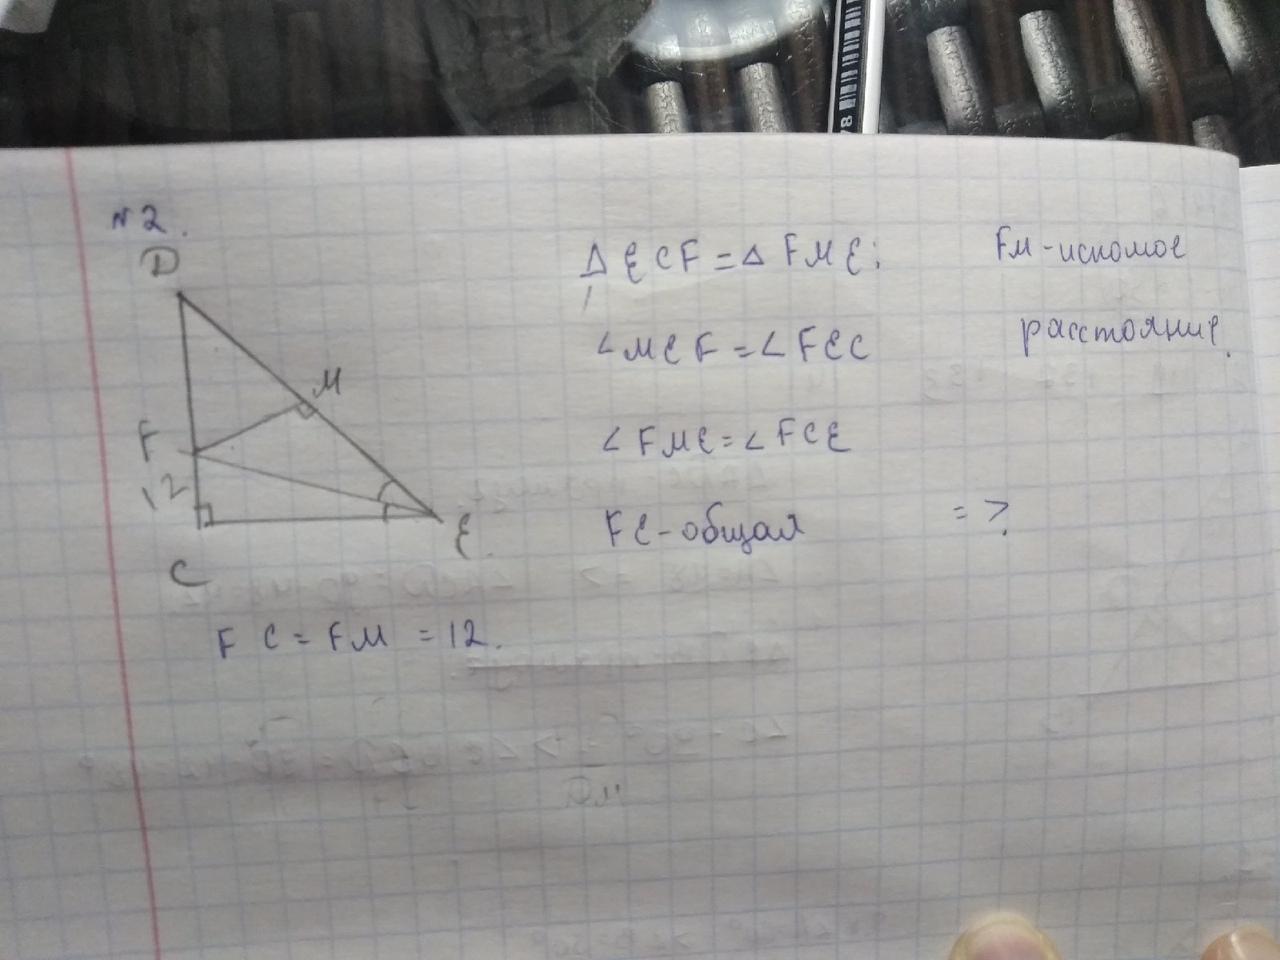 №2.
D
M
F
12
C
E.
ΔECF = ΔFME:
∠MEF = ∠FEC
∠FME = ∠FCE
FE - общая
= >
FM - искомое
расстояние.
FC = FM = 12.
78